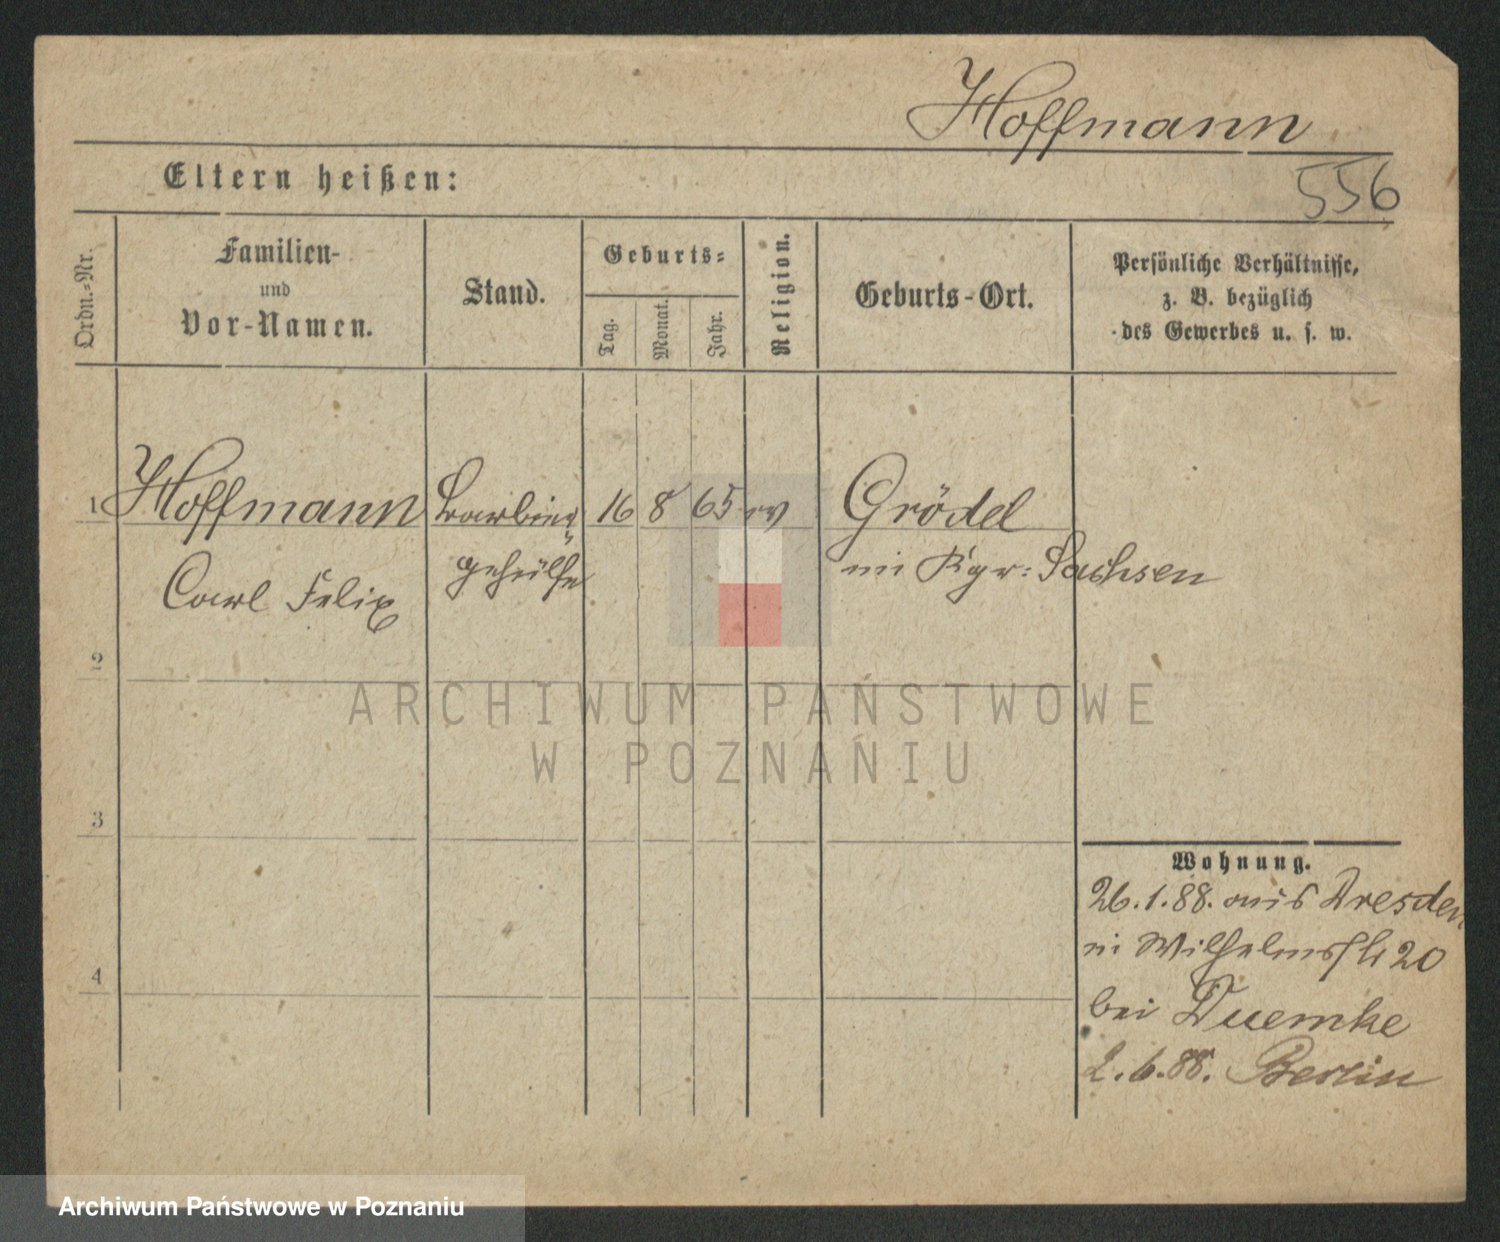 Hoffmann
556
Eltern heißen:
Ordn.-Nr.
Familien-
und
Vor-Namen.
Stand.
Geburts-
Tag.
Monat.
Jahr.
Religion.
Geburts-Ort.
Persönliche Verhältnisse,
z. B. bezüglich
des Gewerbes u. s. w.
1 Hoffmann Barbier 16 8 65 ev Grödel
Carl Felix gehülfe im Kgr: Sachsen
2
ARCHIWUM PAŃSTWOWE
W POZNANIU
3
Wohnung.
26.1.88. aus Dresden
in Wilhelmstr 20
4
bei Duemke
2.6.88. Berlin
Archiwum Państwowe w Poznaniu